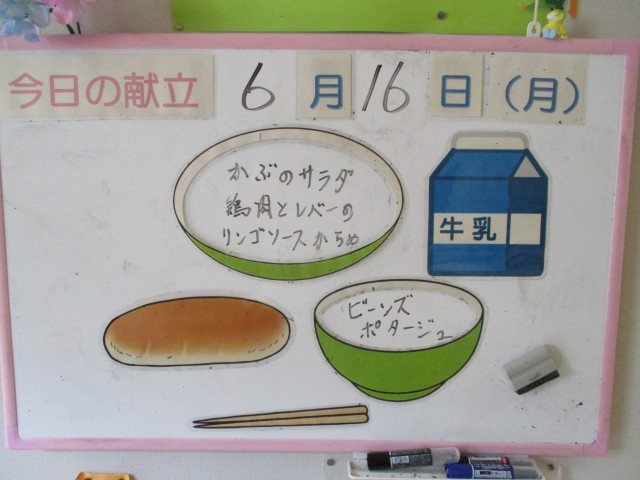 今日の献立 6月16日(月)
かぶのサラダ
鶏肉とレバーの
リンゴソースからめ
牛乳
ビーンズ
ポタージュ